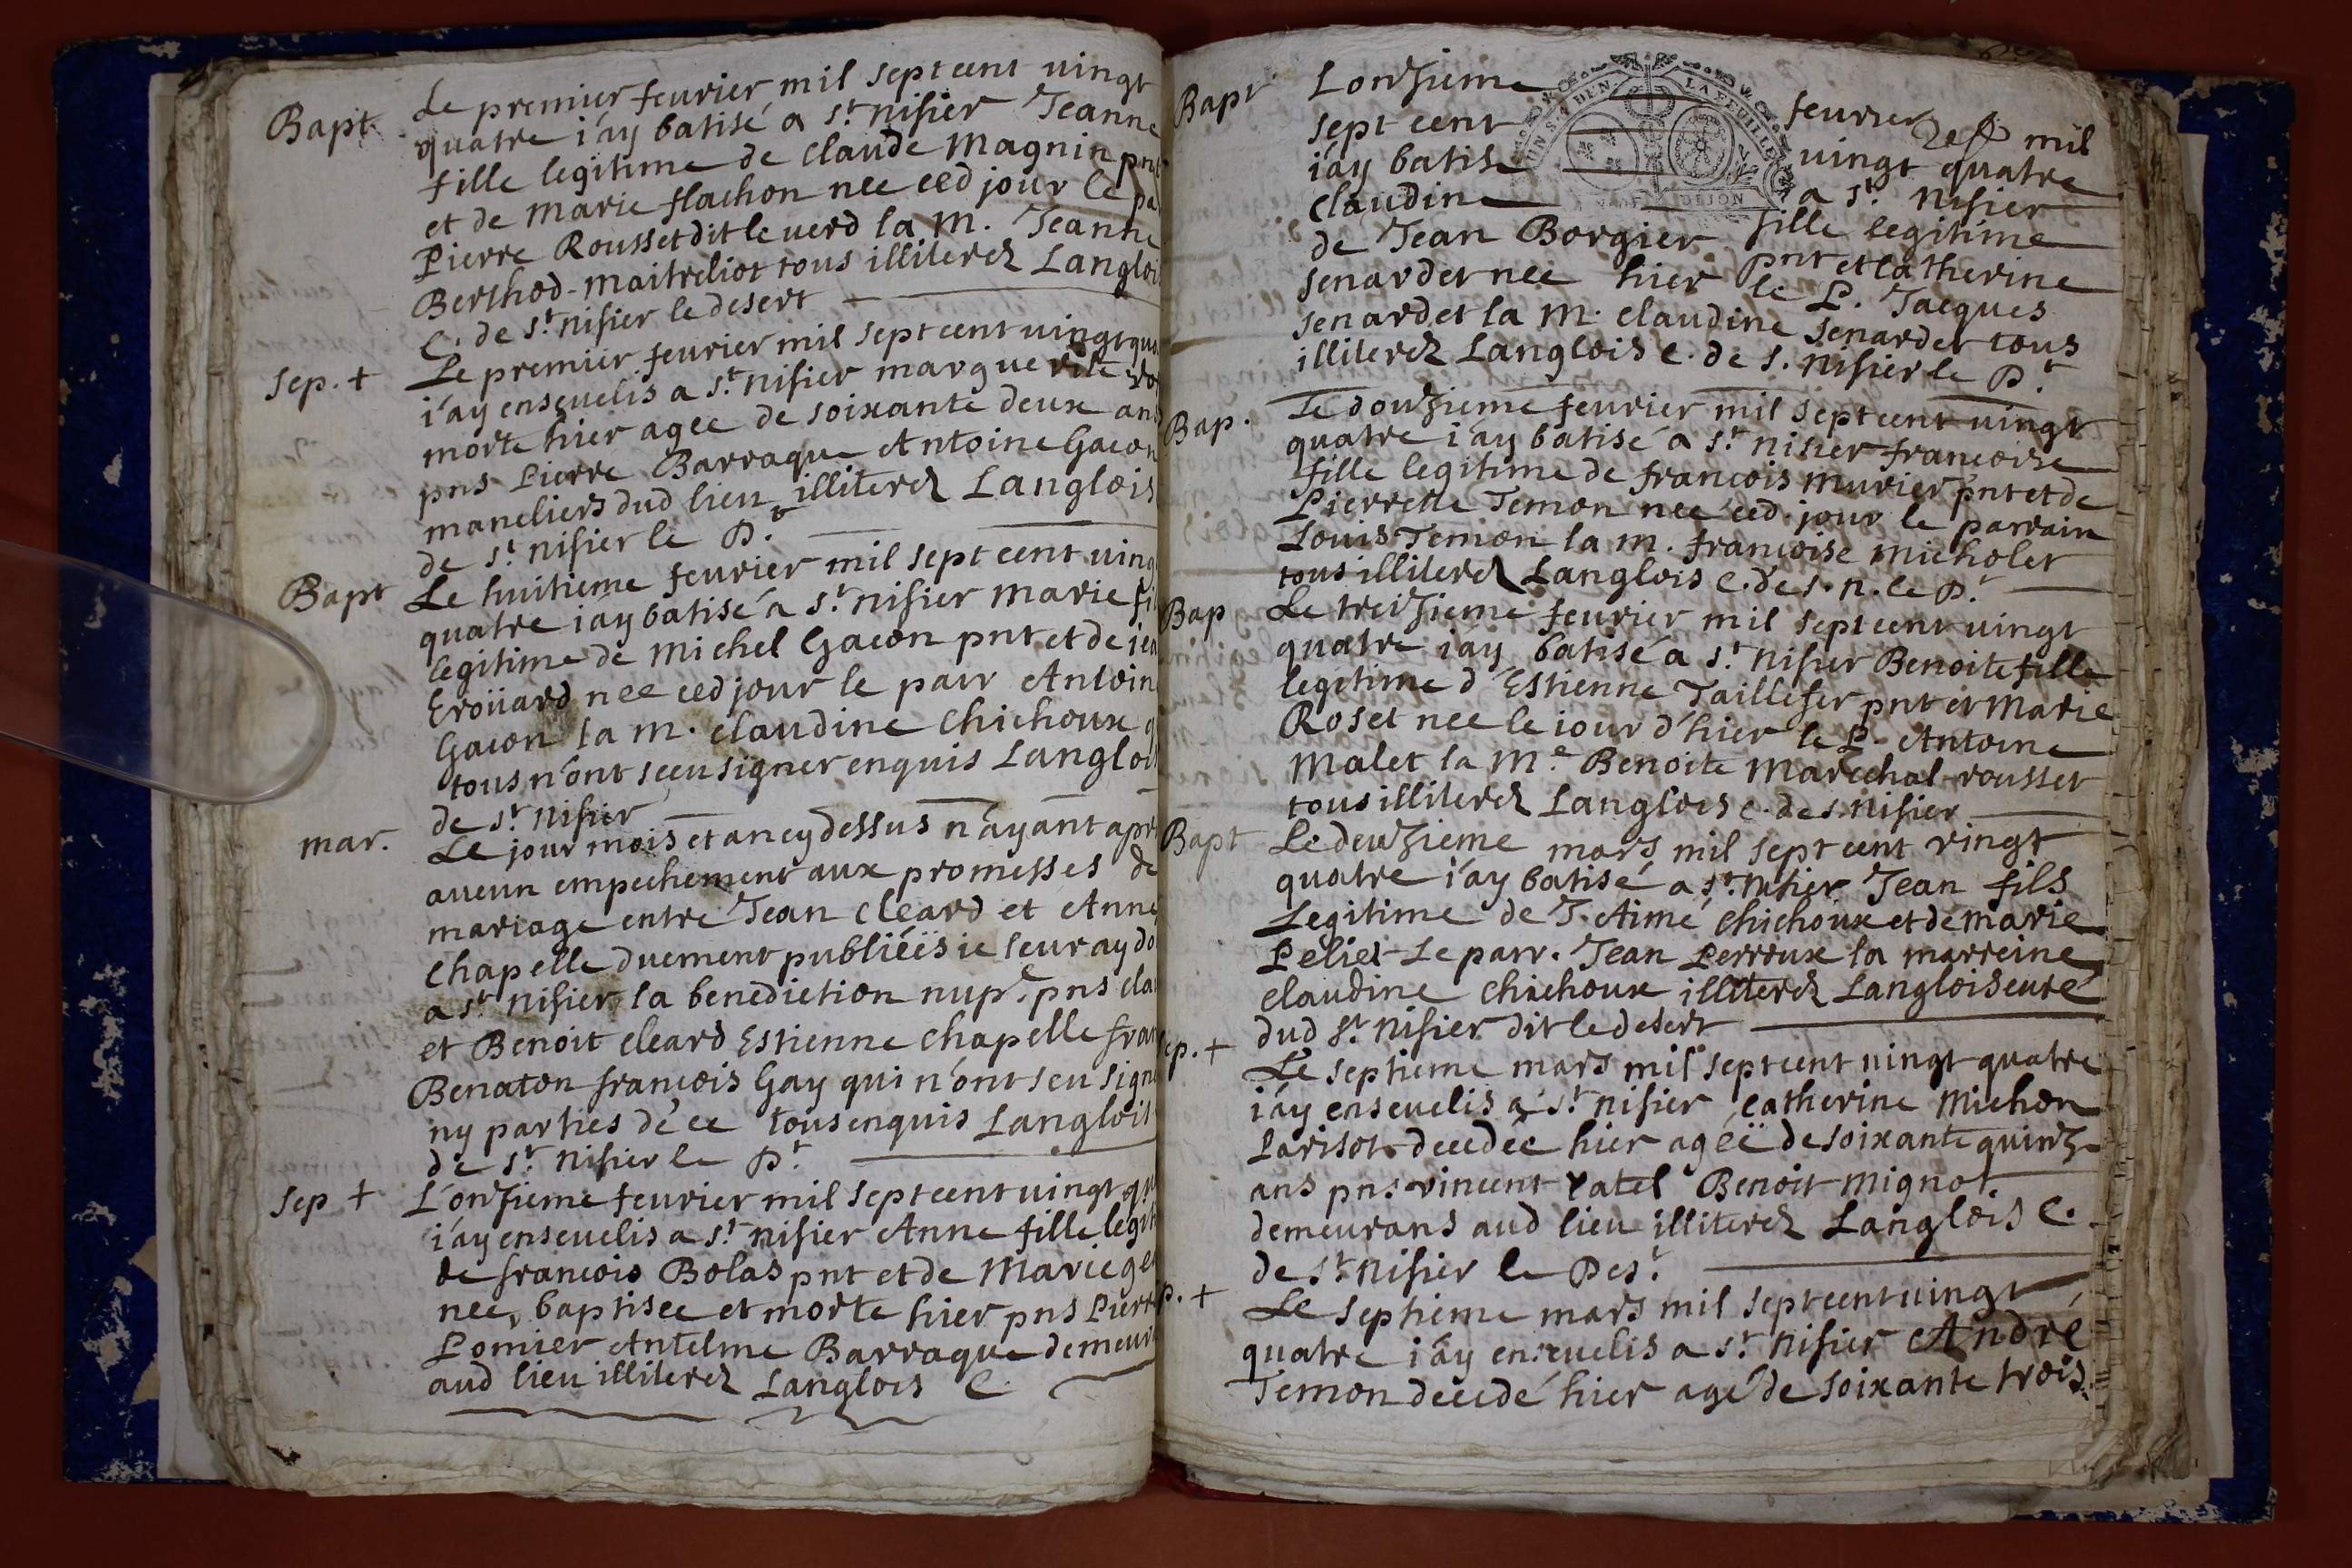 Bapt. Le premier feurier mil sept cent uingt
quatre i'ay batisé a st. nisier Jeanne
fille legitime de claude magnin pnt
et de marie flachon nee ced jour le pa
Pierre Rousset dit le uerd la m. Jeanne
Berthod-maitreliot tous illiterez Langloi
C. de st. nisier le desert
sep. + Le premier feurier mil sept cent uingt qua
i'ay enseuelis a st. nisier marguerite
morte hier agee de soixante deux ans
pns Pierre Barraque Antoine Gacon
maneliers dud lieu illiterez Langlois
de st. nisier le D.t
Bapt Le huitieme feurier mil sept cent uing
quatre i'ay batisé a st. nisier marie fi
legitime de michel Gacon pnt et de jea
Eroüard nee ced jour le parr Antoin
Gacon la m. claudine chichoux q
tous n'ont sceu signer enquis Langloi
de st. nisier
mar. Le jour mois et an cy dessus n'ayant apr
aucun empechement aux promesses de
mariage entre Jean cleard et Anne
chapelle duement publiéës ie leur ay do
a st. nisier la benediction nup.e pns cla
et Benoit cleard Estienne chapelle fran
Benaton francois Gay qui n'ont seu sign
ny parties de ce tous enquis Langlois
de st. nisier le D.t
sep + L'onzieme feurier mil sept cent uingt qu
i'ay enseuelis a st. nisier Anne fille legit
de francois Bolas pnt et de Marie ge
nee, baptisee et morte hier pns Pierr
Lomier Antelme Barraque demeur
aud lieu illiterez Langlois C.
Bapt Lonzieme feurier mil
sept cent uingt quatre
i'ay batise a st. nisier
claudine fille legitime
de Jean Borgier pnt et catherine
senardet nee hier le P. Jacques
senardet la m. claudine senardet tous
illiterez Langlois C. de s. nisier le D.t
UN S. 4 DEN. LA FEUILLE
DIJON
Bap. Le douzieme feurier mil sept cent uingt
quatre i'ay batisé a st. nisier francoise
fille legitime de francois murier pnt et de
Pierrette Temon nee ced. jour le parrain
Louis Temon la m. francoise micholet
tous illiterez Langlois C. de s. n. le D.t
Bap Le treizieme feurier mil sept cent uingt
quatre i'ay batisé a st. nisier Benoite fille
legitime d'Estienne Taillefer pnt et Marie
Roset nee le iour d'hier le P. Antoine
malet la M.e Benoite marechal-rousset
tous illiterez Langlois C. de s. nisier
Bapt Le deuzieme mars mil sept cent vingt
quatre i'ay batisé a st. nisier Jean fils
Legitime de J. Aimé chichoux et de marie
Peliet Le parr. Jean Perroux la marreine
claudine chichoux illiterez Langlois curé
dud st. nisier dit le desert
ep. + Le septieme mars mil sept cent uingt quatre
i'ay enseuelis a st. nisier catherine Michon
Larisot decedée hier agéë de soixante quinze
ans pns vincent Patel Benoit mignot
demeurans aud lieu illiterez Langlois C.
de st. nisier le Des.t
p. + Le septieme mars mil sept cent uingt
quatre i'ay enseuelis a st. nisier André
Temon decedé hier agé de soixante trois